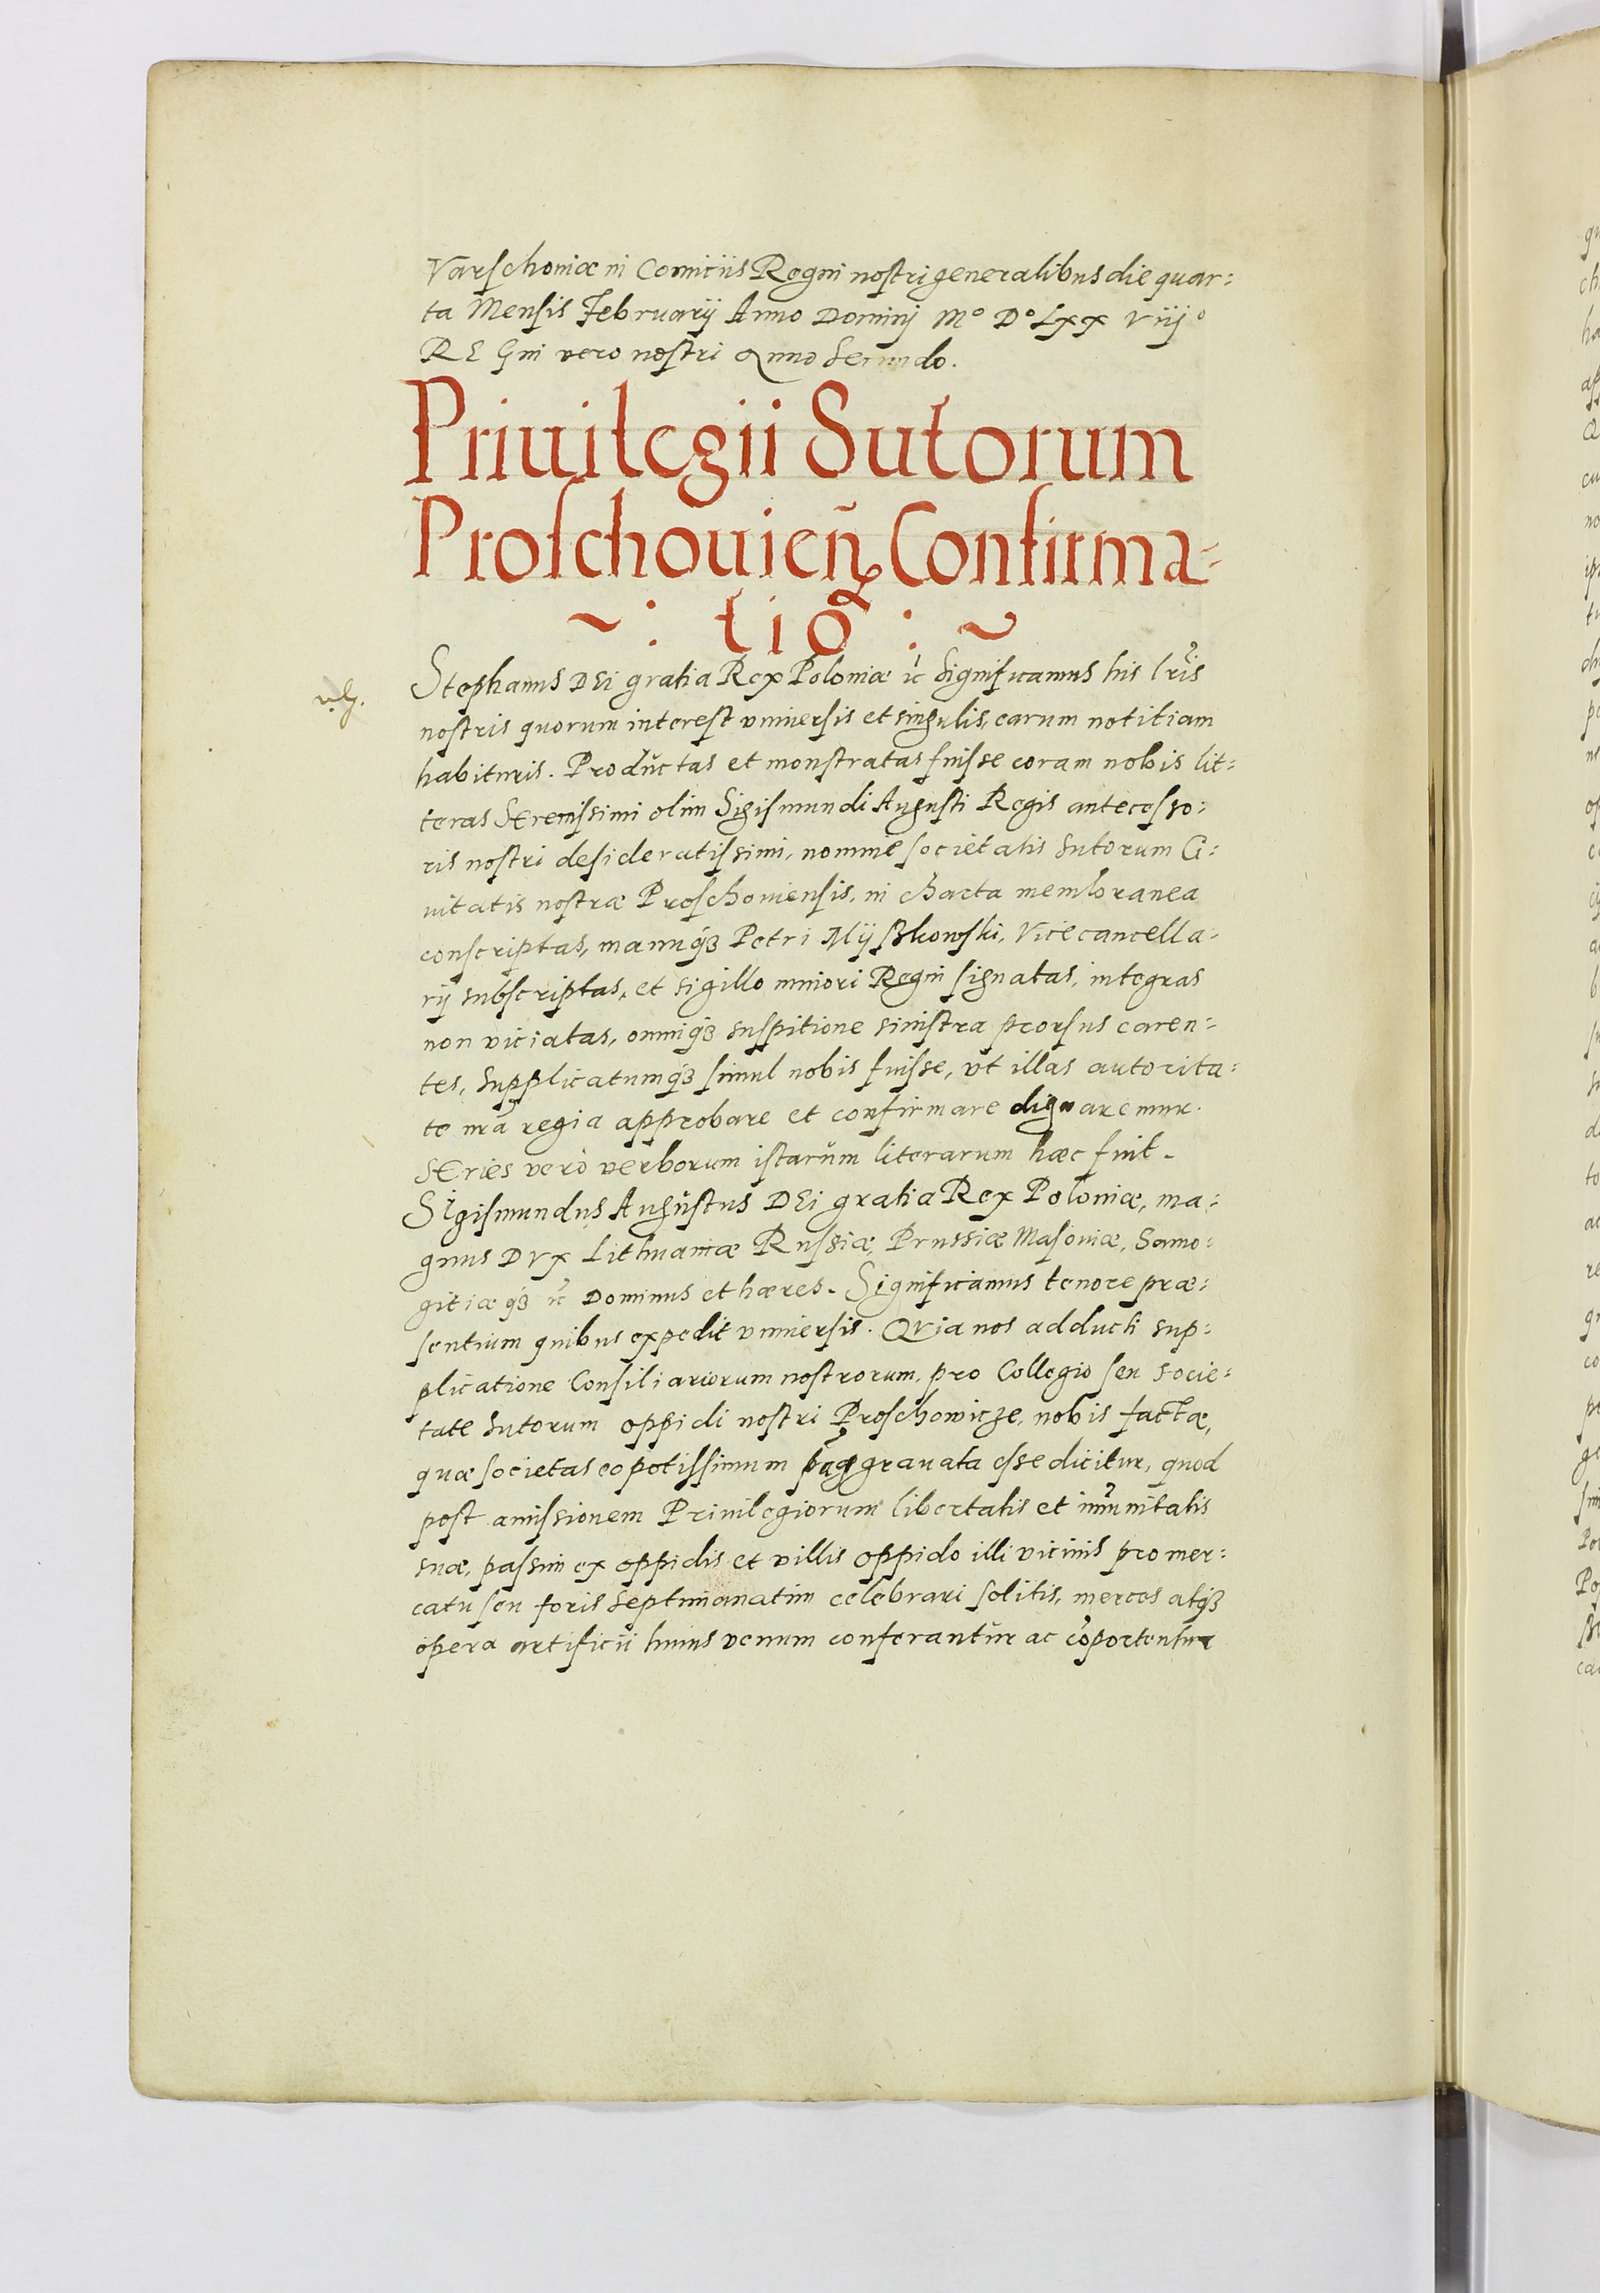 Varschoviæ in Comitiis Regni nostri generalibus die quar:
ta Mensis Februarij Anno Dominj Mº Dº LXX Viijº
REGni vero nostri Anno Secundo.
Priuilegii Sutorum
Proschouieñ Confirma-
~ : tio : ~
Stephanus DEi gratia Rex Poloniæ ic̃ Significamus his lr̃is
nostris quorum interest vniuersis et singulis, earum notitiam
habituris. Productas et monstratas fuisse coram nobis lit:
teras SErenissimi olim Sigismundi Augusti Regis antecesso:
ris nostri desideratissimi, nomine societatis Sutorum Ci:
uitatis nostræ Proschouiensis, in charta membranea
conscriptas, manuq3 Petri Mijskowski, Vicecancella:
rij subscriptas, et sigillo minori Regni signatas, integras
non viciatas, omniq3 suspitione sinistra prorsus caren:
tes, Supplicatumq3 simul nobis fuisse, vt illas autorita:
te nrã regia approbare et confirmare dignaremur.
SEries verò verborum istarum literarum hæc fuit.
SIgismundus Augustus DEi gratia Rex Poloniæ, ma:
gnus DVx Lithuaniæ Russiæ, Prussiæ Masouiæ, Samo:
gitiæ q3 ic̃ Dominus et hæres. Significamus tenore præ:
sentium quibus expedit vniuersis. QVia nos adducti sup:
plicatione Consiliariorum nostrorum, pro Collegio seu socie:
tate Sutorum oppidi nostri Proschowicze, nobis factæ,
quæ societas eo potissimum aggrauata esse dicitur, quod
post amissionem Priuilegiorum libertatis et im̃unitatis
suæ, passim ex oppidis et villis oppido illi vicinis pro mer:
catu seu foris Septimanatim celebrari solitis, merces atq3
opera artificii huius venum conferantur ac cõportentur